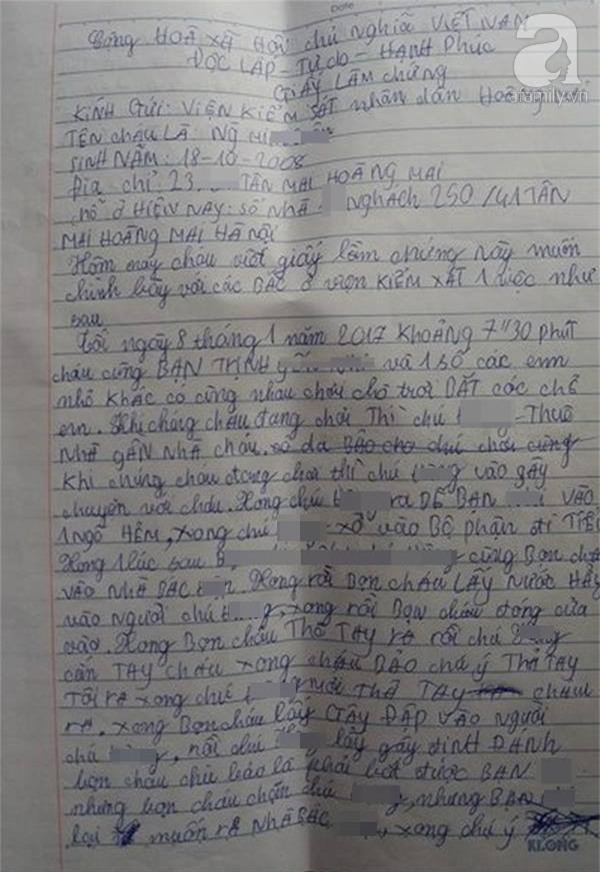 Date
Cộng HOÀ XÃ HỘI chủ nghĩa VIỆT NAM
ĐỘC LẬP - Tự do - HẠNH PHÚC
GIẤY LÀM chứng
a
afamily.vn
KÍNH GỬI: VIỆN KIỂM SÁT nhân dân HOÀNG
TÊN cháu LÀ: NG
SINH NĂM: 18-10-2008
Địa chỉ: 23 TÂN MAI HOÀNG MAI
chỗ ở HIỆN NAY: số NHÀ NGHÁCH 250/41 TÂN
MAI HOÀNG MAI HÀ NỘI
Hôm nay cháu viết giấy làm chứng này muốn
chình bầy với các BÁC ở viện KIỂM XÁT 1 việc như
sau
Tối ngày 8 tháng 1 năm 2017 KHOẢNG 7h30 phút
cháu cùng BẠN THỊNH và 1 số các em
nhỏ KHÁC có cùng nhau chơi chò trơi BẮT các chế
em. Khi chúng cháu đang chơi THÌ chú -Thuê
NHÀ gần NHÀ cháu. chơi cùng
KHI chúng cháu đang chơi thì chú vào gây
chuyện với cháu. Xong chú ra DẾ BẠN VÀO
1 NGÕ HẺM, xong chú xờ vào BỘ PHẬN đi TIỂU
Xong 1 lúc sau cùng Bọn chá
VÀO NHÀ BÁC. Xong rồi BỌN CHÁU LẤY NƯỚC HẤT
vào người chú, xong rồi Bọn cháu đóng cửa
vào. Xong Bọn cháu THÒ TAY RA rồi chú
cắn TAY cháu xong cháu BẢO chú ý THẢ TAY
TÔI RA xong chú mới THẢ TAY cháu
RA. xong Bọn cháu lấy GẬY ĐẬP VÀO NGƯỜI
chú, rồi chú lấy gậy đinh ĐÁNH
bọn cháu chú bảo là phải bắt được BẠN
nhưng bọn cháu chặn chú, nhưng BẠN
lại muốn RA NHÀ BÁC, xong chú ý
KLONG